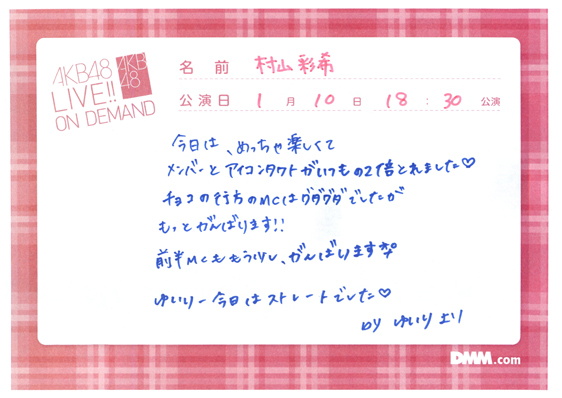 AKB48
LIVE!!
ON DEMAND
AKB
48
名前 村山彩希
公演日 1月10日 18:30公演
今日は、めっちゃ楽しくて
メンバーとアイコンタクトがいつもの2倍とれました♡
チョコの行方のMCはグダグダでしたが
もっとがんばります!!
前半MCももう少し、がんばります
ゆいりー今日はストレートでした♡
by ゆいりより
DMM.com